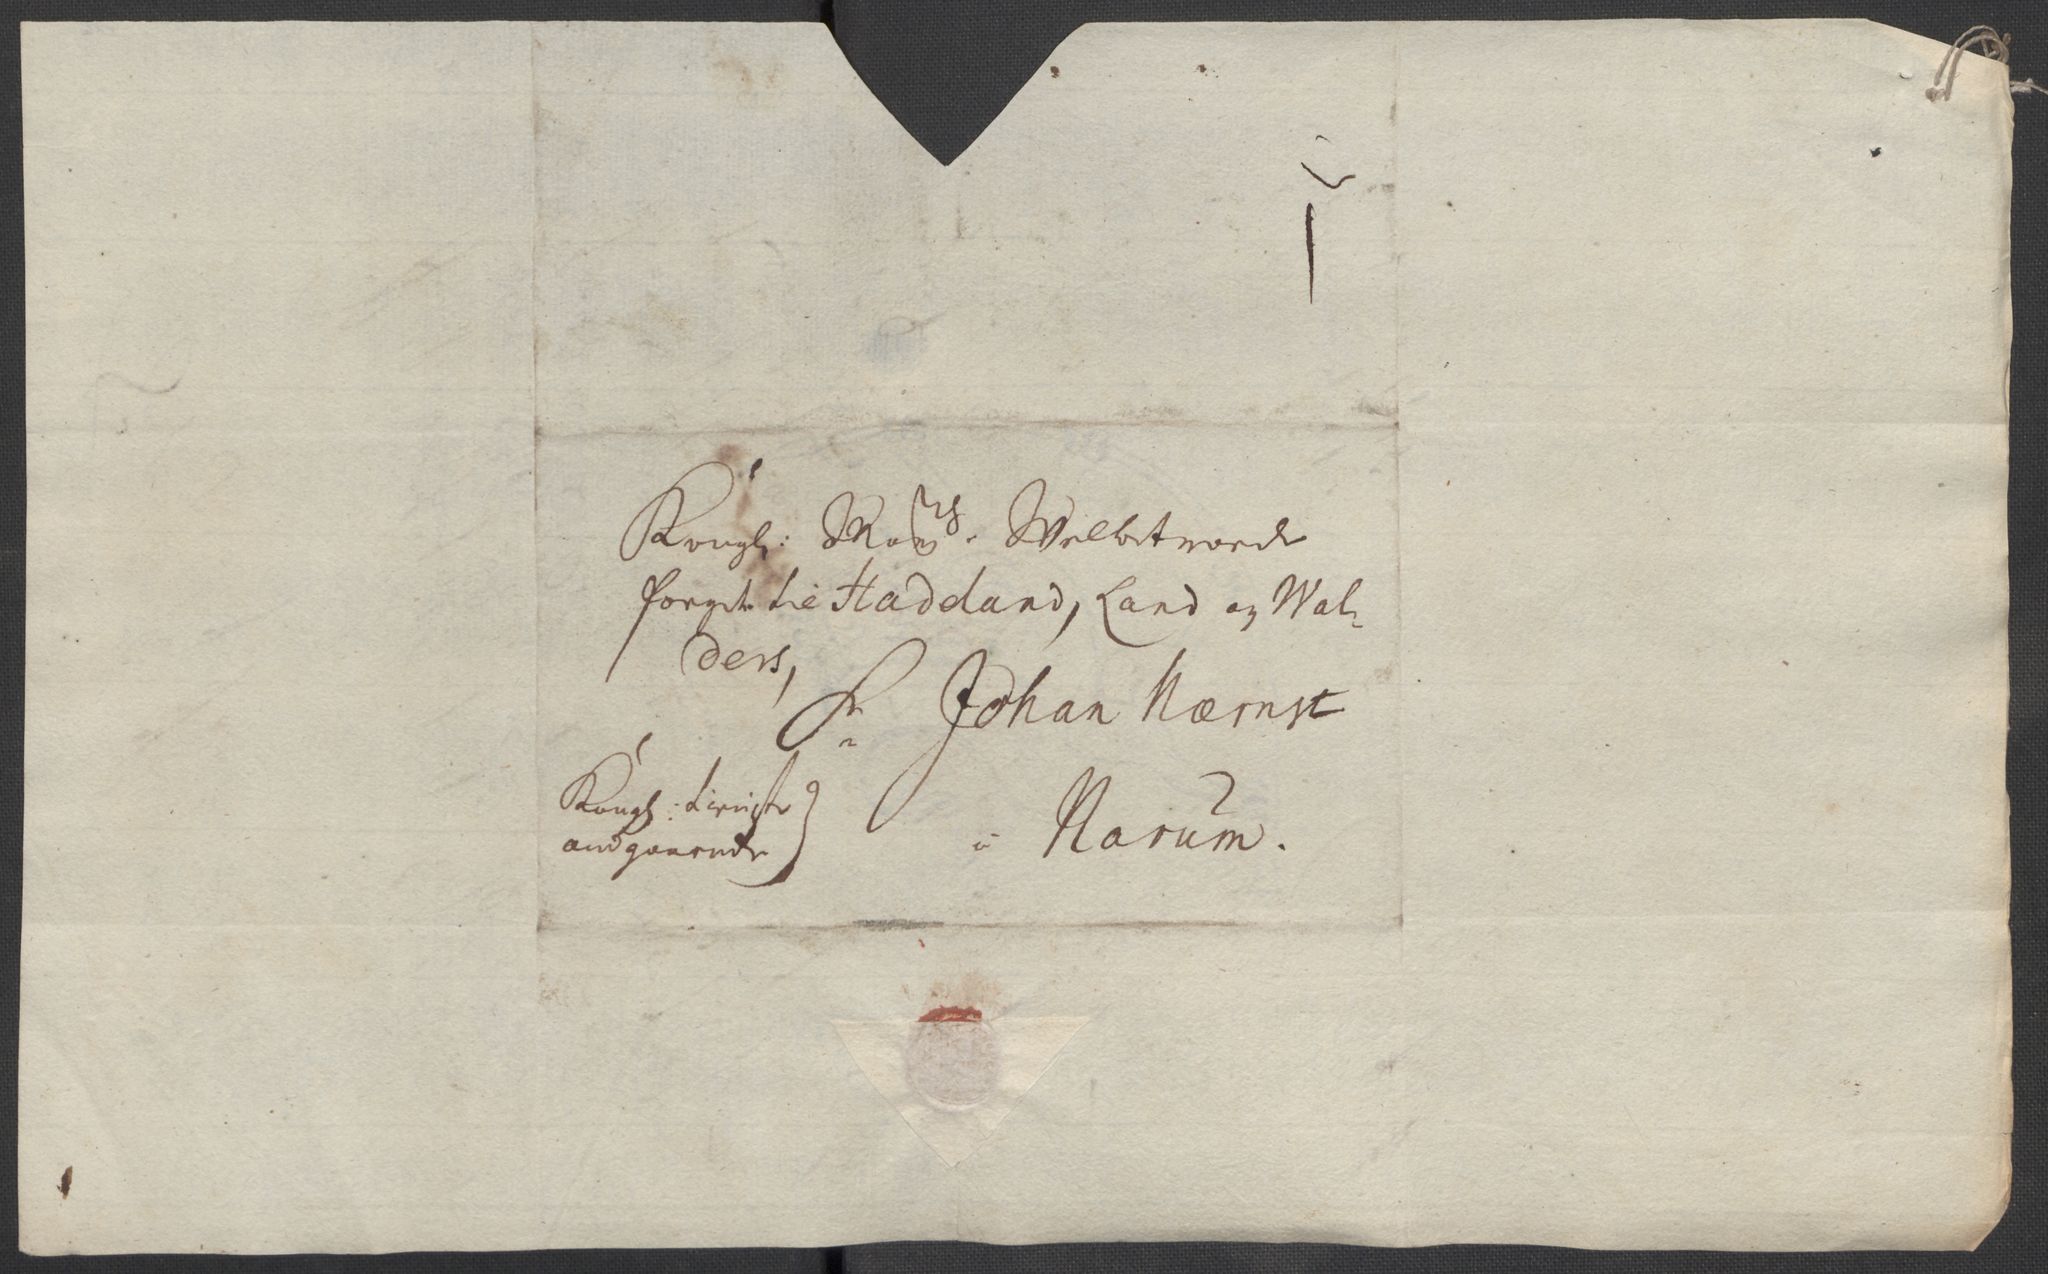 Kongl: May.ts Welbetroede
foged til Hadeland, Land og Wal-
ders,
Sr Johan Nærnst
à Narüm.
Kongl: tieniste
andgaaende